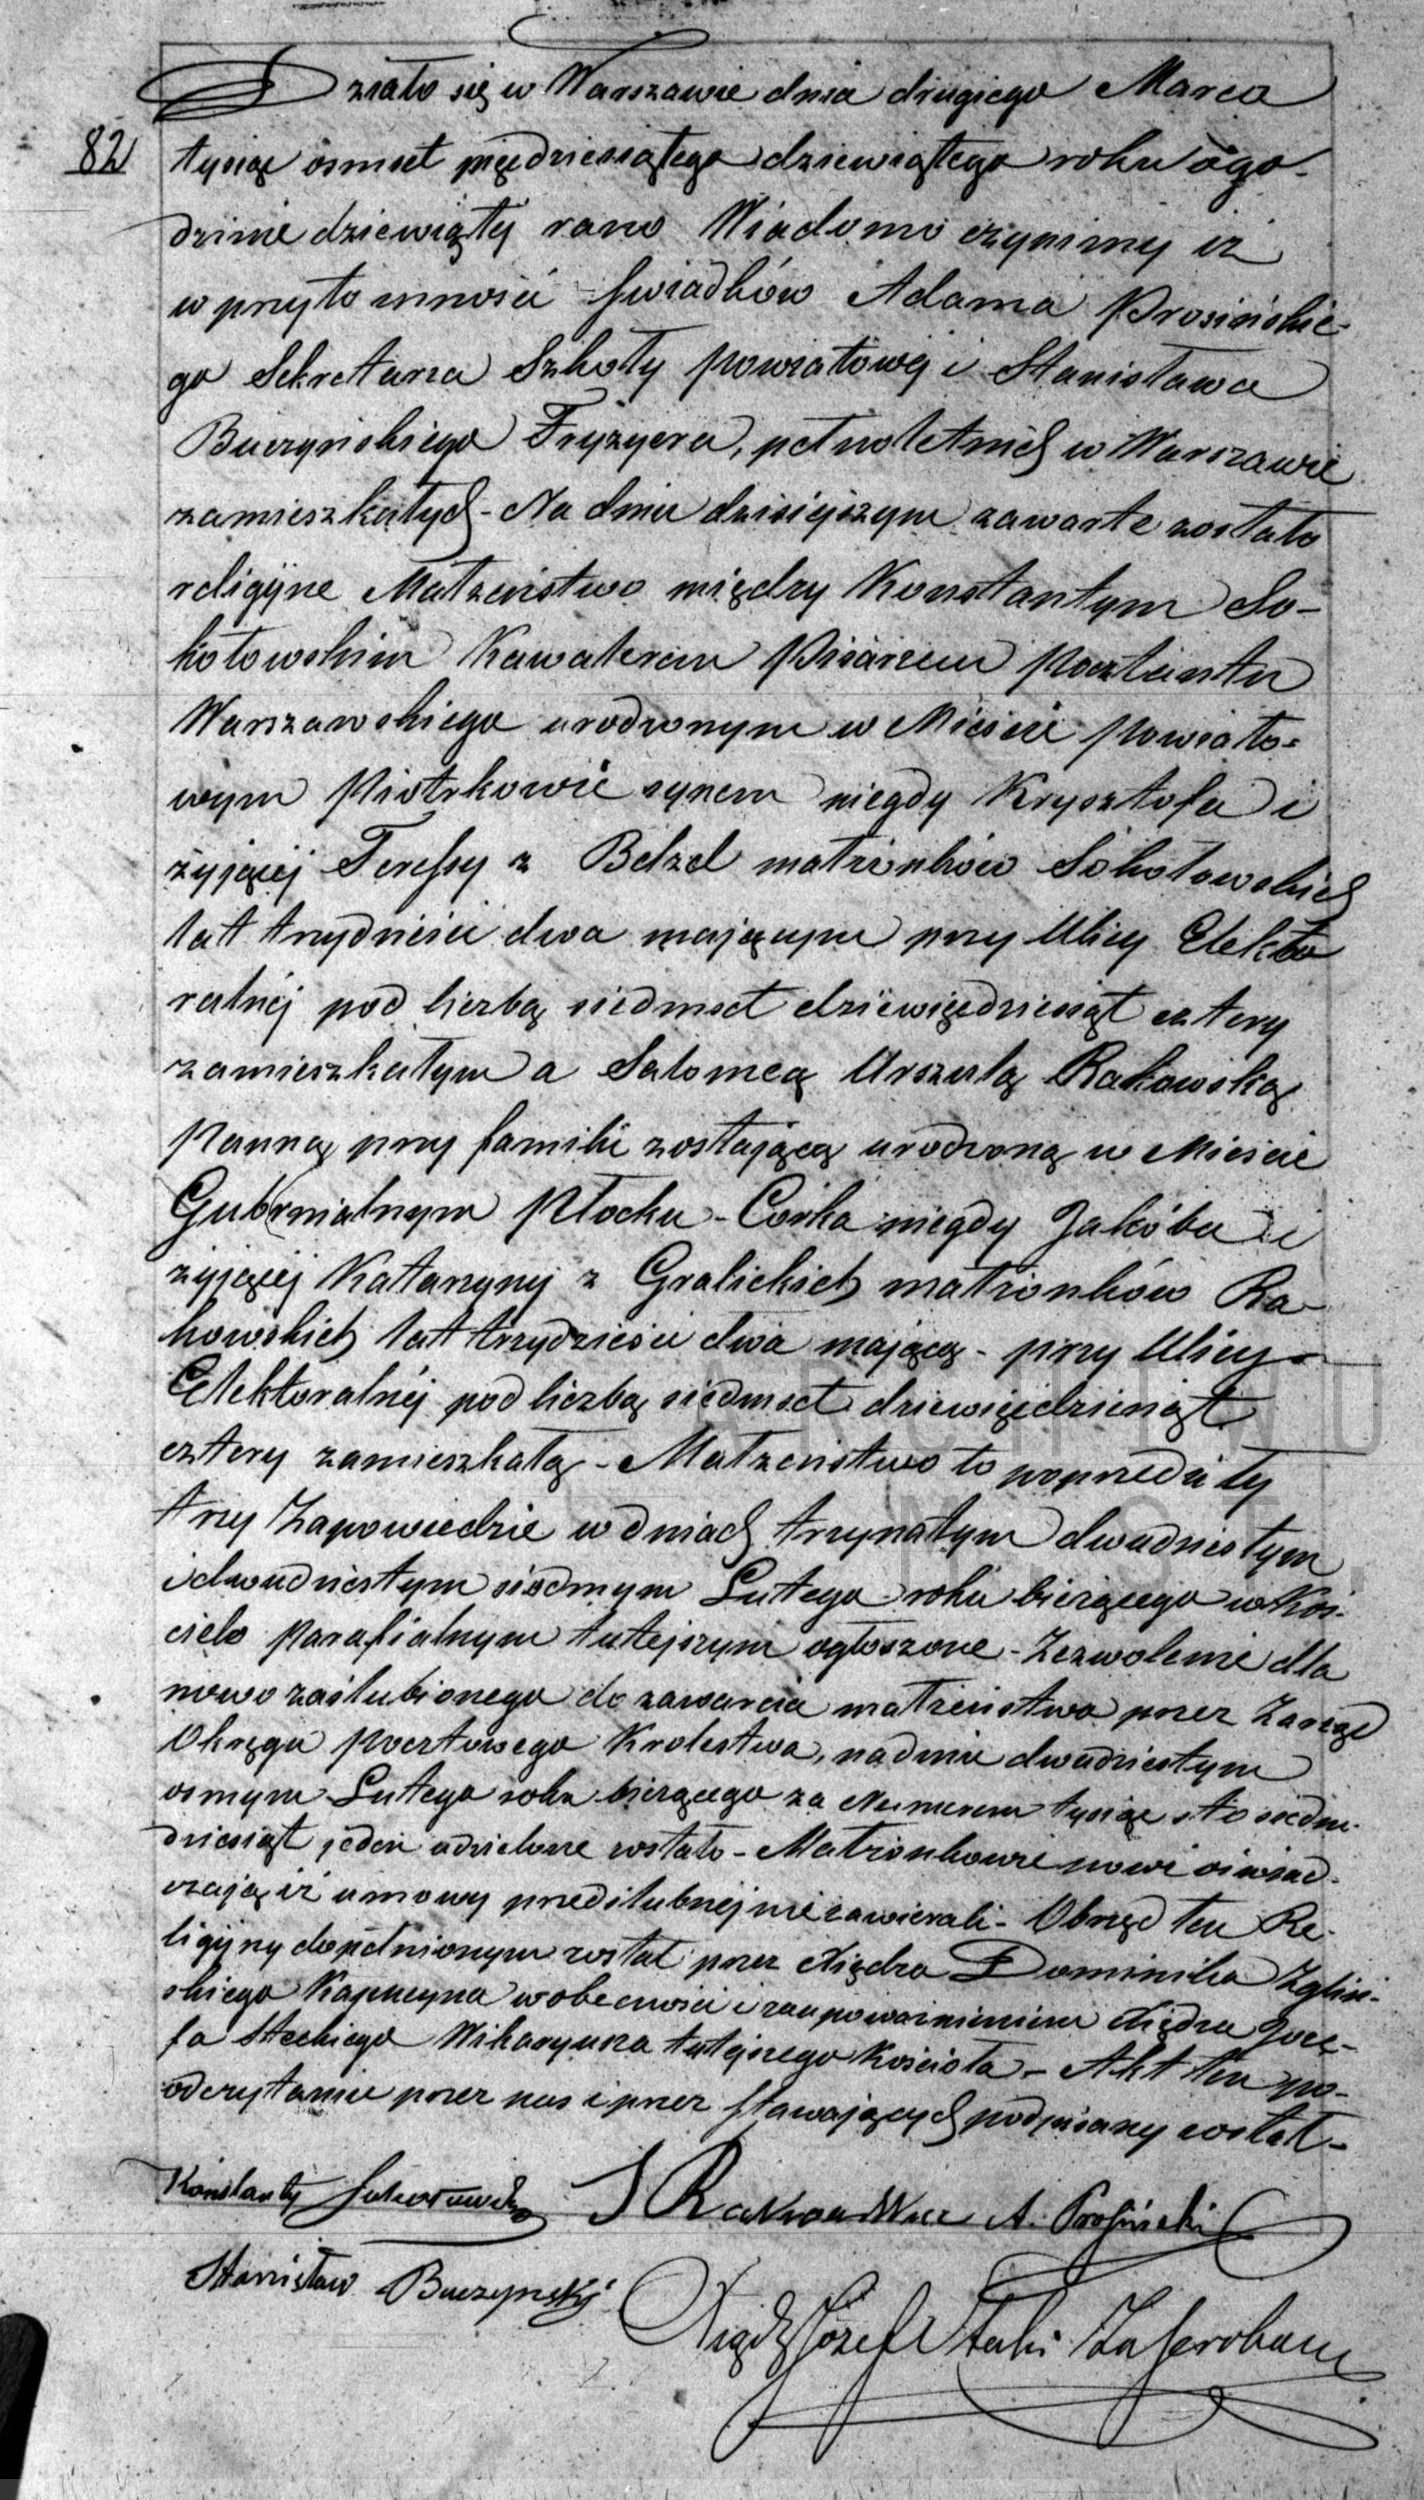 Działo się w Warszawie dnia drugiego Marca
82 tysiąc osmset pięćdziesiątego dziewiątego roku o go-
dzinie dziewiątéj rano Wiadomo czynimy iż
w przytomności świadków Adama Prosińskie-
go Sekretarza Szkoły powiatowéj i Stanisława
Buczyńskiego Fryzyera, pełnoletnich w Warszawie
zamieszkałych - Na dniu dzisiejszym zawarte zostało
religijne Małżeństwo między Konstantym So-
kołowskim Kawalerem Pisarzem Pocztamtu
Warszawskiego urodzonym w Mieście powiato-
wym Piotrkowie synem niegdy Krysztofa i
żyjącéj Teressy z Belzel małżonków Sokołowskich
lat trzydzieści dwa mającym przy Ulicy Elekto
ralnéj pod liczbą siedmset dziewięćdziesiąt cztery
zamieszkałym a Salomeą Urszulą Rakowską
Panną przy familii zostającą urodzoną w Mieście
Gubernialnym Płocku - Córką niegdy Jakóba i
żyjącéj Katarzyny z Gralickich małżonków Ra-
kowskich lat trzydzieści dwa mającą - przy Ulicy
Elektoralnéj pod liczbą siedmset dziewięćdziesiąt
cztery zamieszkałą - Małżeństwo to poprzedziły
trzy Zapowiedzie w dniach trzynastym dwudziestym
i dwudziestym siódmym Lutego roku bieżącego w Koś-
ciele Parafialnym tutejszym ogłoszone - Zezwolenie dla
nowo zaślubionego do zawarcia małżeństwa przez Zarząd
Okręgu Pocztowego Krolestwa, na dniu dwudziestym
osmym Lutego roku bieżącego za Numerem tysiąc sto siedm-
dziesiąt jeden udzielone zostało - Małżonkowie nowi oświad-
czają iż umowy przedślubnéj nie zawierali - Obrzęd ten Re-
ligijny dopełnionym został przez Xiędza Dominika Zgliń-
skiego Kapucyna w obecności i za upoważnieniem Xiędza Józe-
fa Steckiego Wikaryusza tutejszego Kościoła - Akt ten po
odczytaniu przez nas i przez stawających podpisany został -
Konstanty Sokołowski S Rakowska A. Prosiński
Stanisław Buczyński
Xiądz Józef Stecki
ARCHIWU
M.ST.